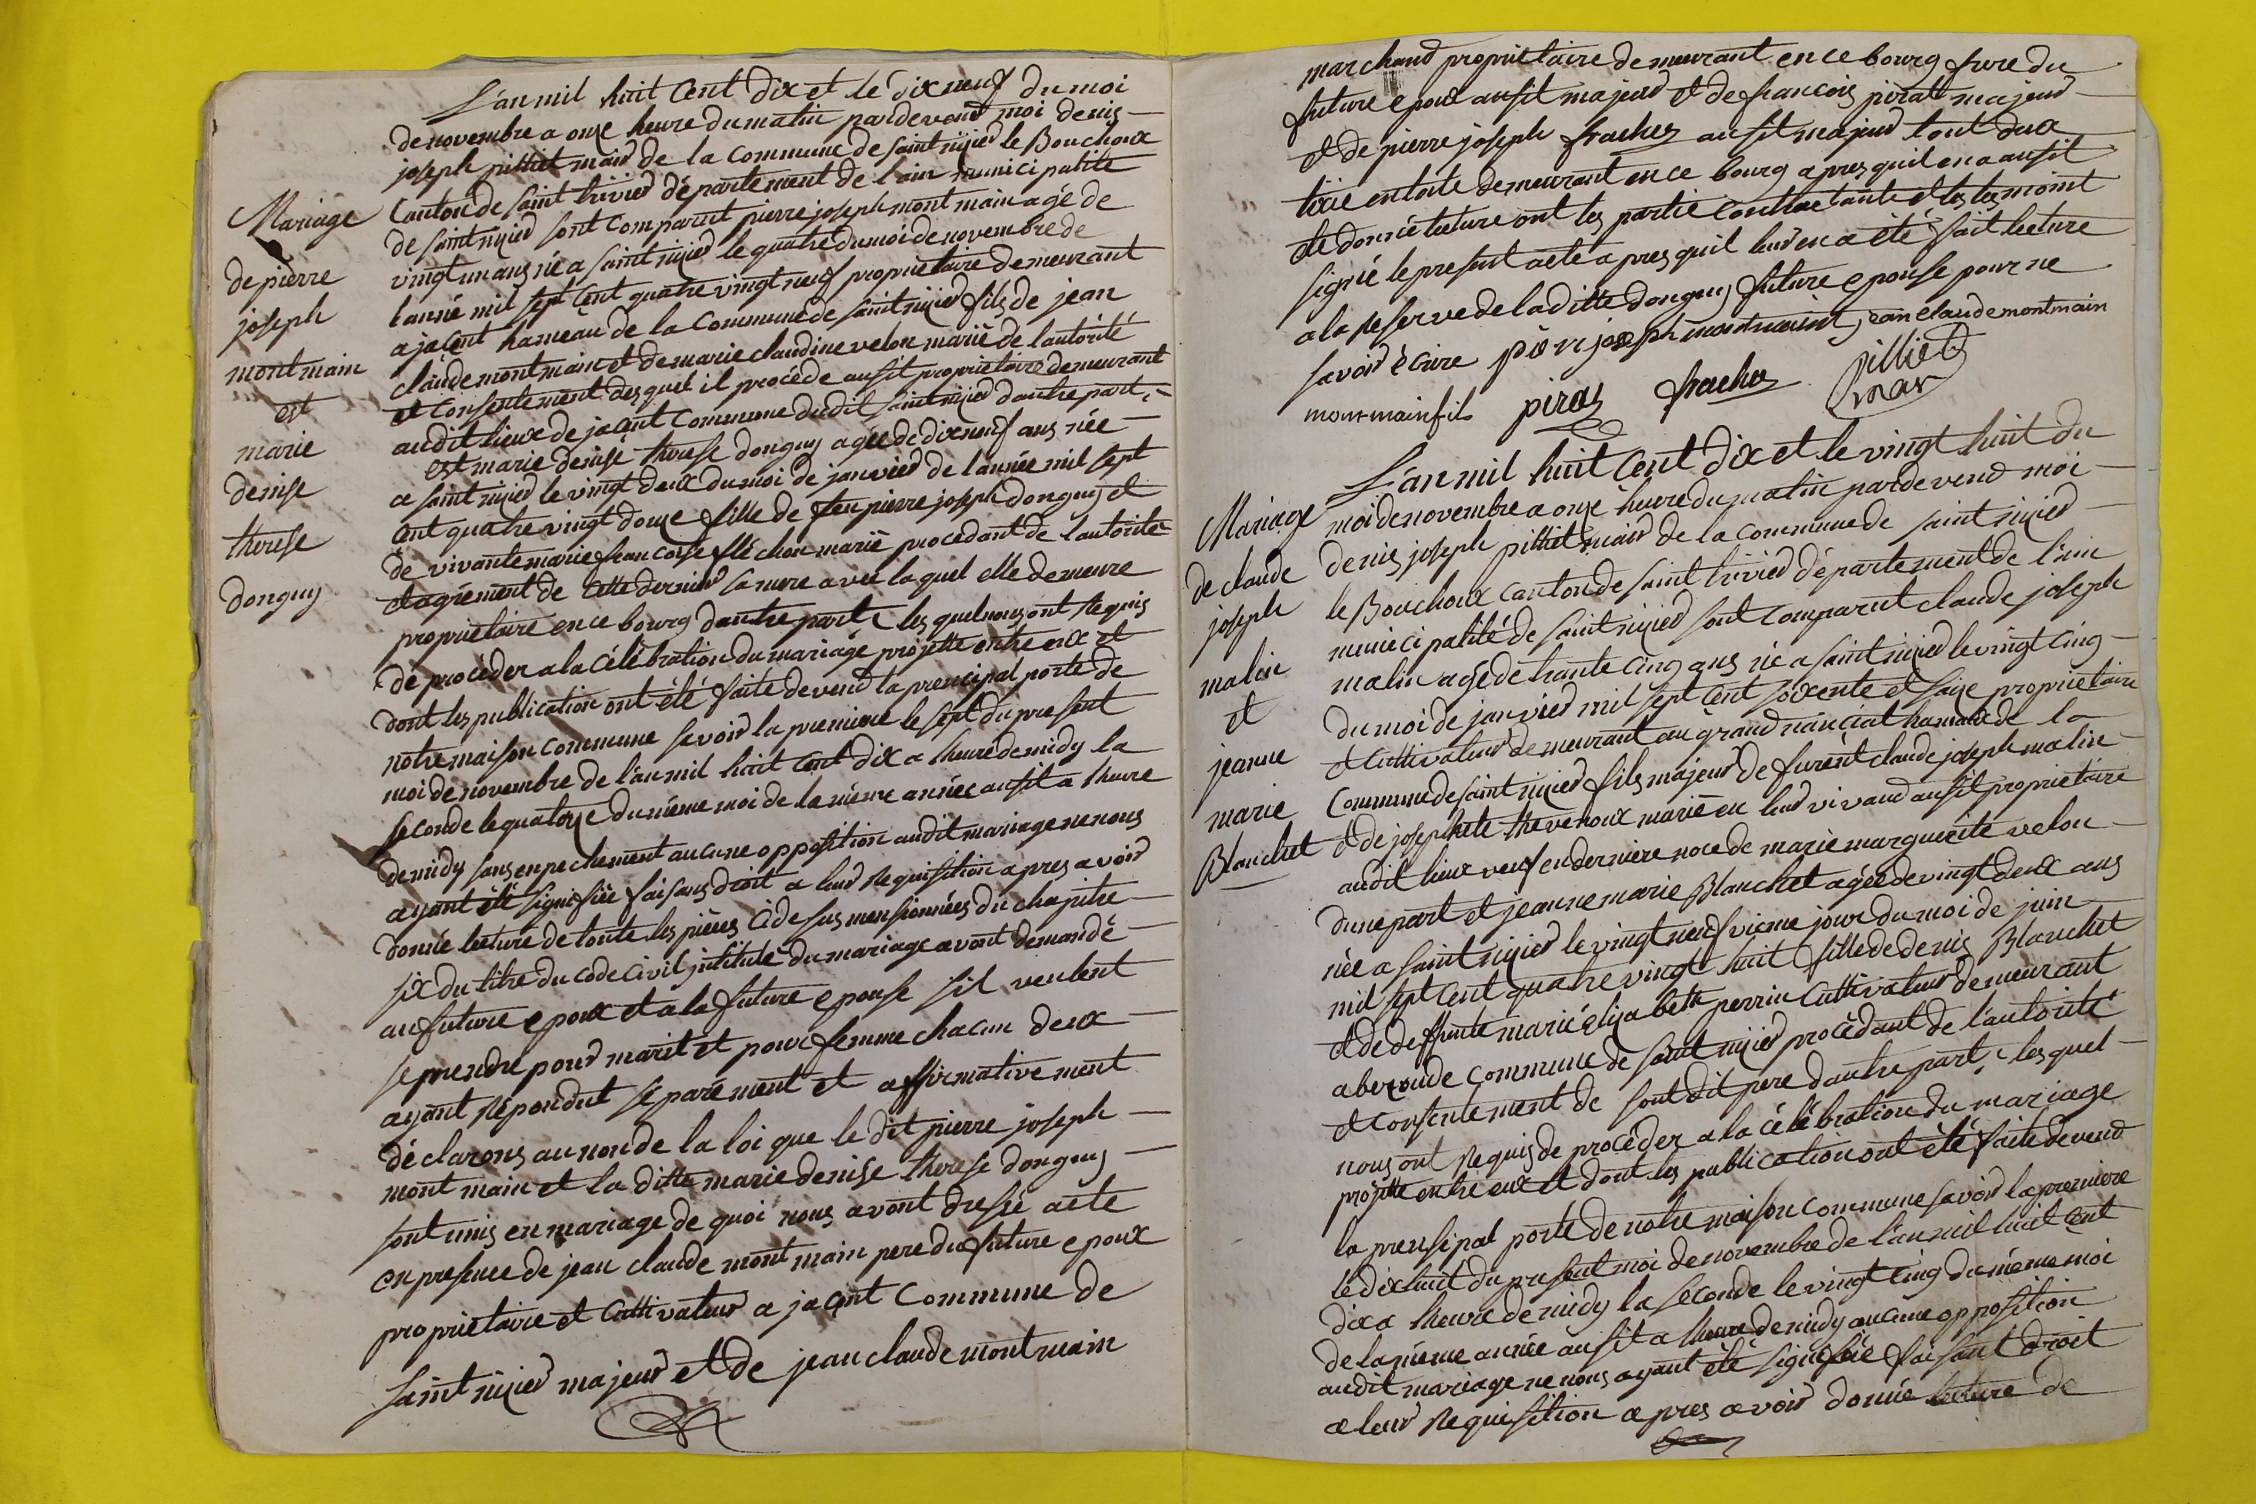 L'an mil huit Cent dix et le dix neuf du moi
de novembre a onze heure du matin pardevand moi denis
joseph pilliet maire de la Commune de saint nizier le Bouchoux
Canton de saint trivier département de l'ain municipalité
de saint nizier sont comparut pierre joseph montmain agé de
vingt un ans né a saint nizier le quatre du moi de novembre de
l'anné mil sept Cent quatre vingt neuf propriétaire demeurant
a jacent hameau de la Commune de saint nizier fils de jean
claude montmain et de marie claudine velon marié de l'autorité
et consentement desquel il procéde aussit propriétaire demeurant
audit lieux de jacent Commune dudit saint nizier d'autre part,
est marie denise therese donguy agée de dix neuf ans née
a saint nizier le vingt deux du moi de janvier de l'année mil sept
Cent quatre vingt douze fille de feu pierre joseph donguy et
de vivante marie francoise fléchon marié procédant de l'autorité
et agrément de cette dernier sa mere avec laquel elle demeure
propriétaire en ce bourg d'autre part, les quel nous ont Requis
de procéder a la Célébration du mariage projetté entre eux et
dont les publication ont été faite devend la principal porte de
notre maison commune savoir la premiere le sept du present
moi de novembre de l'an mil huit Cent dix a l'heure de midy la
seconde le quatorze du même moi de la même année aussit a l'heure
de midy sans enpechement aucune opposition audit mariage ne nous
ayant été signifiée faisans droit a leur Requisition apres avoir
donnée lecture de toute les pièces Cidesus mensionnées du chapitre
six du titre du code Civil intitulé du mariage avont demandé
au future epoux et a la future epouse sil veulent
se prendre pour marit et pour femme chacun deux
ayant Répondut separement et affirmativement
déclarons au nom de la loi que le dit pierre joseph
mont main et la ditte marie denise therese donguy
sont unis en mariage de quoi nous avont dressé acte
en presence de jean claude mont main pere du future epoux
propriétaire et Cultivateur a jacent Commune de
saint nizier majeur et de jean claude montmain
Mariage
de pierre
joseph
montmain
est
marie
denise
therese
donguy
marchand propriétaire demeurant en ce bourg frere du
future epoux aussit majeur et de francois pirat majeur
et de pierre joseph frachet aussit majeur tout deux
demeurant en ce bourg apres quil en a aussit
été donné lecture ont les partie contractante et les temoint
signé le present acte apres quil leur en a été fait lecture
a la Reserve de la ditte donguy future epouse pour ne
savoir écrire pierre joseph montmain jean claude montmain
montmain fils pirat frachet pilliet
mar
L'an mil huit Cent dix et le vingt huit du
moi de novembre a onze heure du matin pardevend moi
denis joseph pilliet maire de la Commune de saint nizier
le Bouchoux Canton de saint trivier département de l'ain
municipalité de saint nizier sont comparut claude joseph
malin agé de trante cinq ans né a saint nizier le vingt cinq
du moi de janvier mil sept Cent soixente et saize propriétaire
et Cultivateur demeurant au grand nanciat hamau de la
Commune de saint nizier fils majeur de furent claude joseph malin
et de josephete thevenoux marié en leur vivand aussit propriétaire
audit lieux veuf en derniere noce de marie marguerite velon
d'une part et jeanne marie Blanchet agée de vingt deux ans
née a saint nizier le vingt neuf vieme jour du moi de juin
mil sept Cent quatre vingt huit fille de denis Blanchet
et de deffunte marie elizabeth perrin Cultivateur demeurant
a bezoude commune de saint nizier procédant de l'autorité
et consentement de son dit pere d'autre part, les quel
nous ont Requis de procéder a la célébration du mariage
projetté entre eux et dont les publication ont été faite devend
la prensipal porte de notre maison commune savoir la premiere
le dix huit du present moi de novembre de l'an mil huit cent
dix a l'heure de midy la seconde le vingt cinq du même moi
de la même année aussit a l'heure de midy aucune opposition
audit mariage ne nous ayant été signifiée faisant droit
a leur Requisition apres avoir donnée lecture de
Mariage
de claude
joseph
malin
et
jeanne
marie
Blanchet